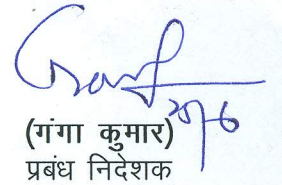 (गंगा कुमार)
प्रबंध निदेशक